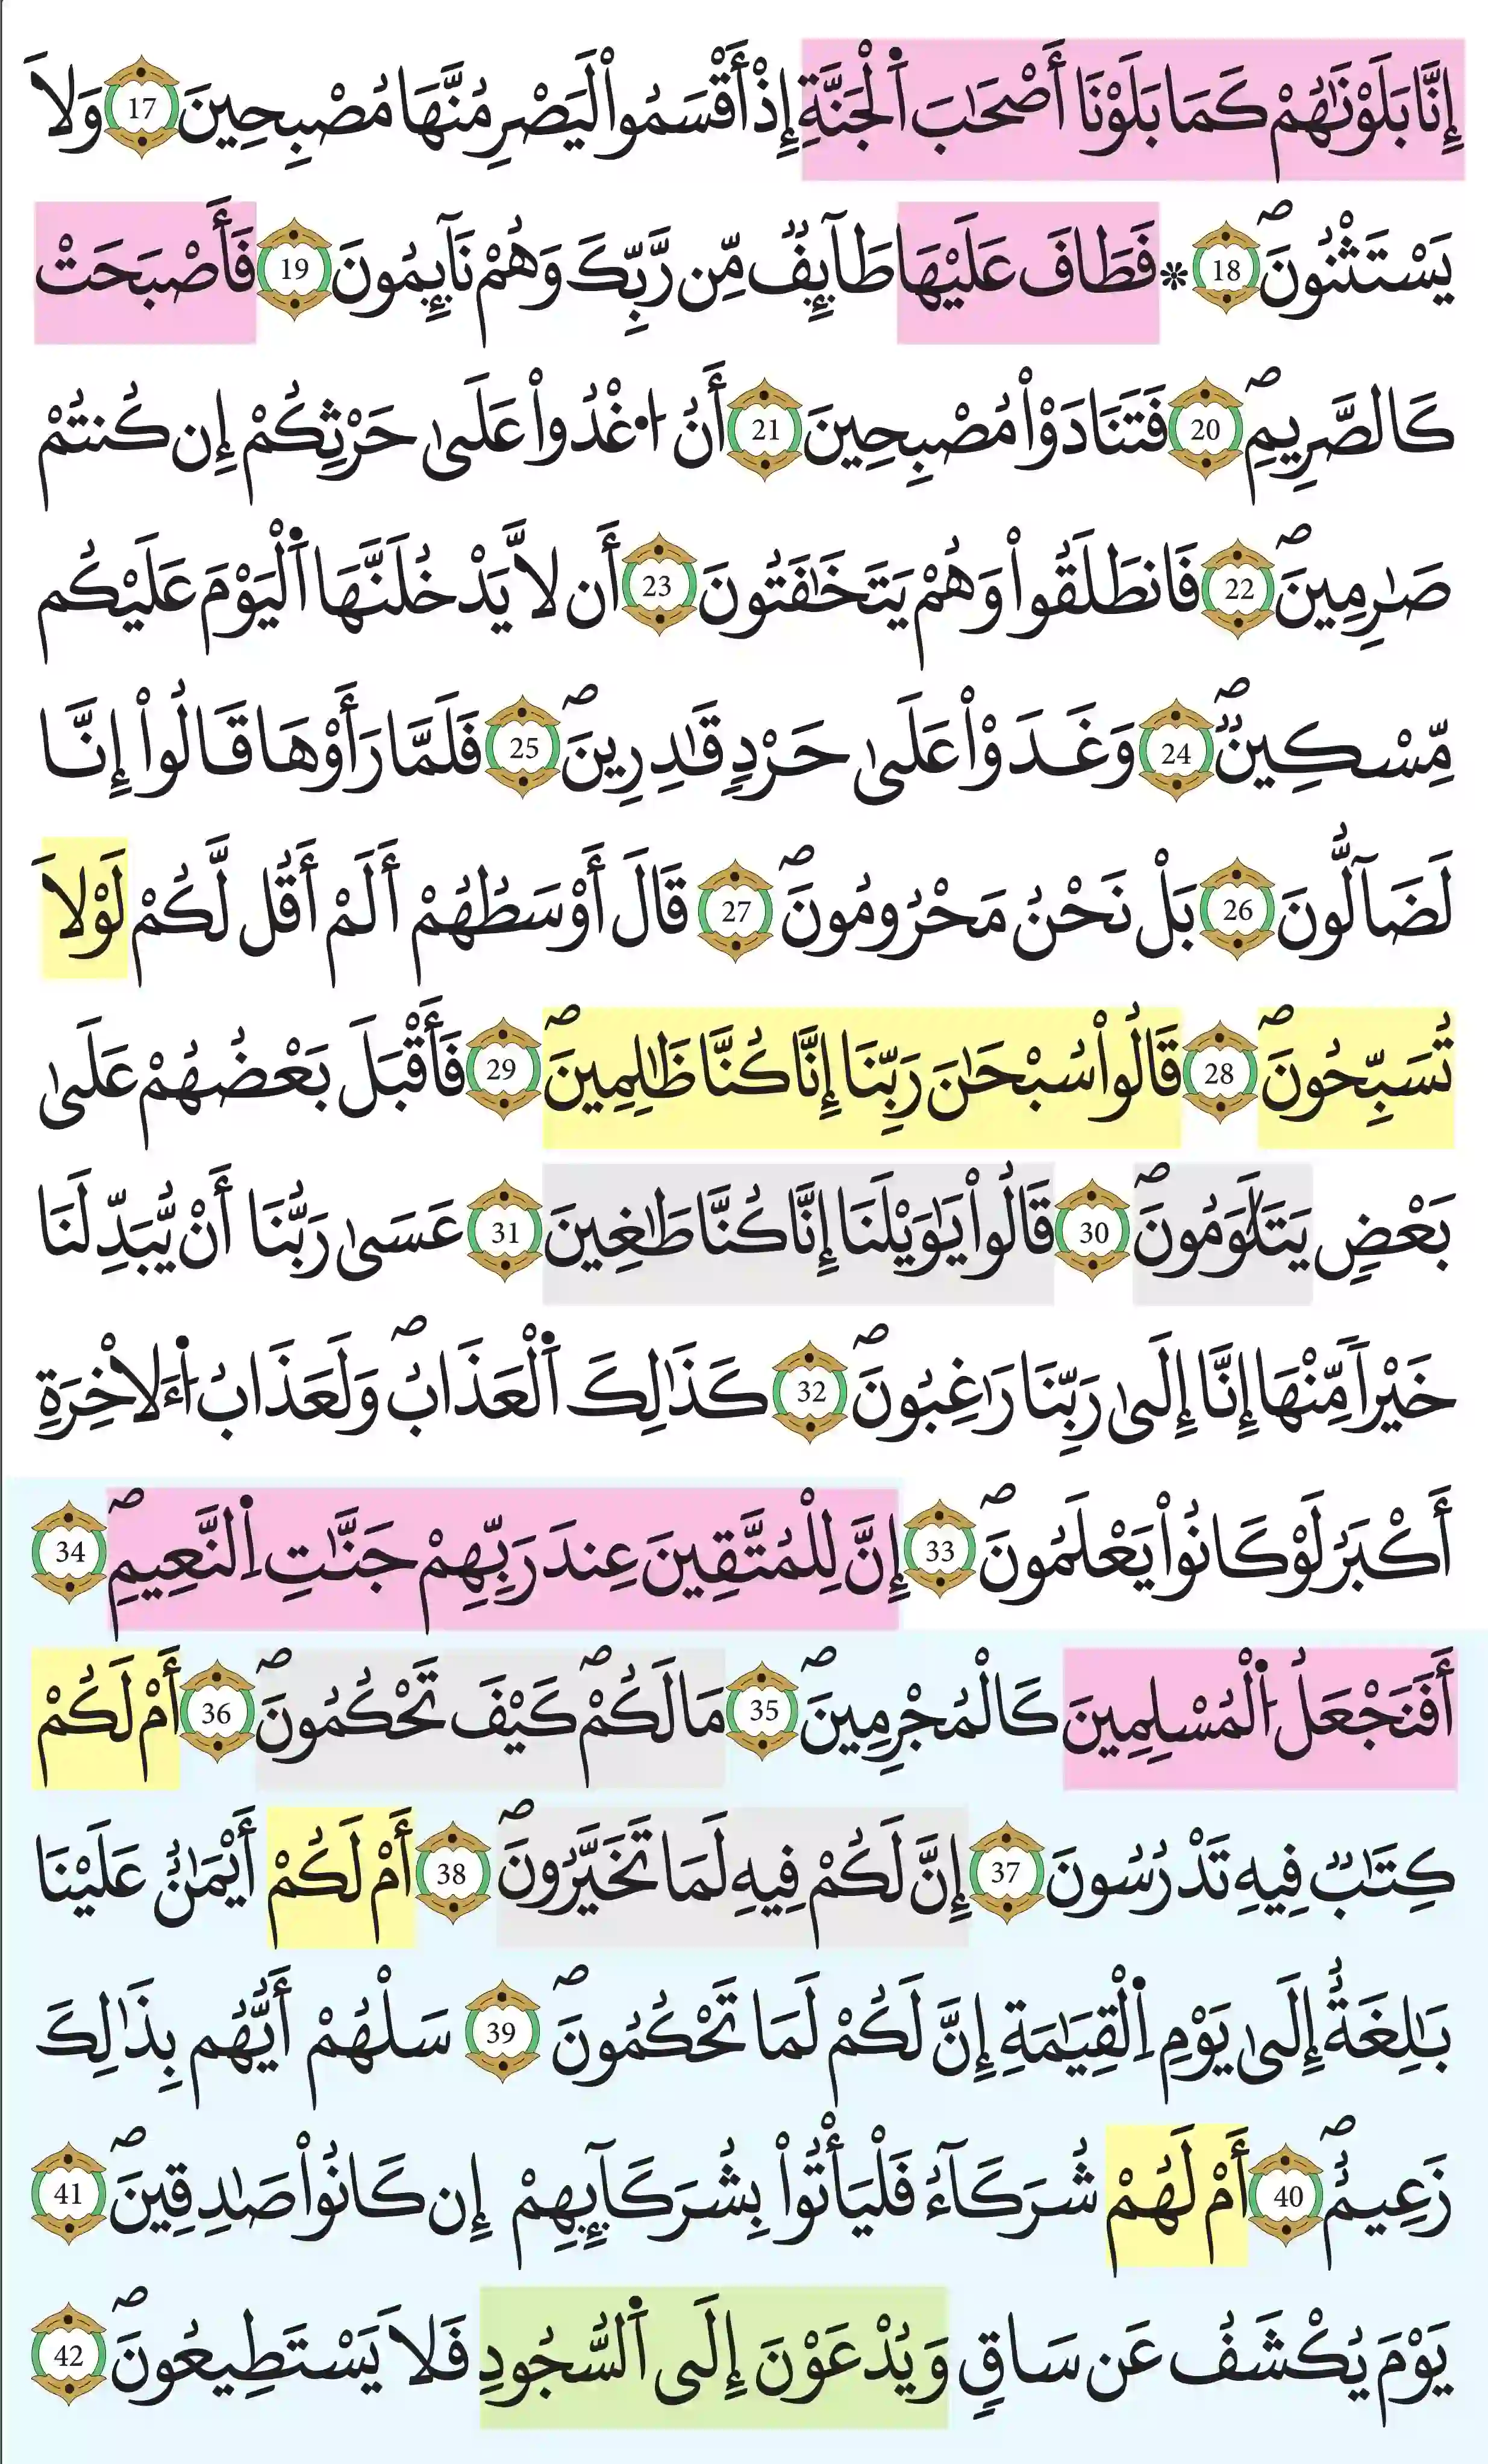 إِنَّا بَلَوْنَٰهُمْ كَمَا بَلَوْنَا أَصْحَٰبَ اَ۬لْجَنَّةِ إِذْ أَقْسَمُواْ لَيَصْرِمُنَّهَا مُصْبِحِينَ 17 وَلاَ
يَسْتَثْنُونَۖ 18 * فَطَافَ عَلَيْهَا طَآئِفٞ مِّن رَّبِّكَ وَهُمْ نَآئِمُونَ 19 فَأَصْبَحَتْ
كَالصَّرِيمِۖ 20 فَتَنَادَوْاْ مُصْبِحِينَ 21 أَنُ ا۟غْدُواْ عَلَىٰ حَرْثِكُمْ إِن كُنتُمْ
صَٰرِمِينَۖ 22 فَانطَلَقُواْ وَهُمْ يَتَخَٰفَتُونَ 23 أَن لاَّ يَدْخُلَنَّهَا اَ۬لْيَوْمَ عَلَيْكُم
مِّسْكِينٞۖ 24 وَغَدَوْاْ عَلَىٰ حَرْدٖ قَٰدِرِينَۖ 25 فَلَمَّا رَأَوْهَا قَالُواْ إِنَّا
لَضَآلُّونَ 26 بَلْ نَحْنُ مَحْرُومُونَۖ 27 قَالَ أَوْسَطُهُمْ أَلَمْ أَقُل لَّكُمْ لَوْلاَ
تُسَبِّحُونَۖ 28 قَالُواْ سُبْحَٰنَ رَبِّنَا إِنَّا كُنَّا ظَٰلِمِينَۖ 29 فَأَقْبَلَ بَعْضُهُمْ عَلَىٰ
بَعْضٖ يَتَلَٰوَمُونَۖ 30 قَالُواْ يَٰوَيْلَنَا إِنَّا كُنَّا طَٰغِينَ 31 عَسَىٰ رَبُّنَا أَنْ يُّبَدِّلَنَا
خَيْراٗ مِّنْهَا إِنَّا إِلَىٰ رَبِّنَا رَٰغِبُونَۖ 32 كَذَٰلِكَ اَ۬لْعَذَابُۖ وَلَعَذَابُ اُ۬ءَلاْخِرَةِ
أَكْبَرُ لَوْ كَانُواْ يَعْلَمُونَۖ 33 إِنَّ لِلْمُتَّقِينَ عِندَ رَبِّهِمْ جَنَّٰتِ اِ۬لنَّعِيمِۖ 34
أَفَنَجْعَلُ اُ۬لْمُسْلِمِينَ كَالْمُجْرِمِينَۖ 35 مَا لَكُمْۖ كَيْفَ تَحْكُمُونَۖ 36 أَمْ لَكُمْ
كِتَٰبٞ فِيهِ تَدْرُسُونَ 37 إِنَّ لَكُمْ فِيهِ لَمَا تَخَيَّرُونَۖ 38 أَمْ لَكُمْ أَيْمَٰنٌ عَلَيْنَا
بَٰلِغَةٌ إِلَىٰ يَوْمِ اِ۬لْقِيَٰمَةِ إِنَّ لَكُمْ لَمَا تَحْكُمُونَۖ 39 سَلْهُمْ أَيُّهُم بِذَٰلِكَ
زَعِيمٌۖ 40 أَمْ لَهُمْ شُرَكَآءُ فَلْيَأْتُواْ بِشُرَكَآئِهِمْ إِن كَانُواْ صَٰدِقِينَۖ 41
يَوْمَ يُكْشَفُ عَن سَاقٖ وَيُدْعَوْنَ إِلَى اَ۬لسُّجُودِ فَلاَ يَسْتَطِيعُونَۖ 42